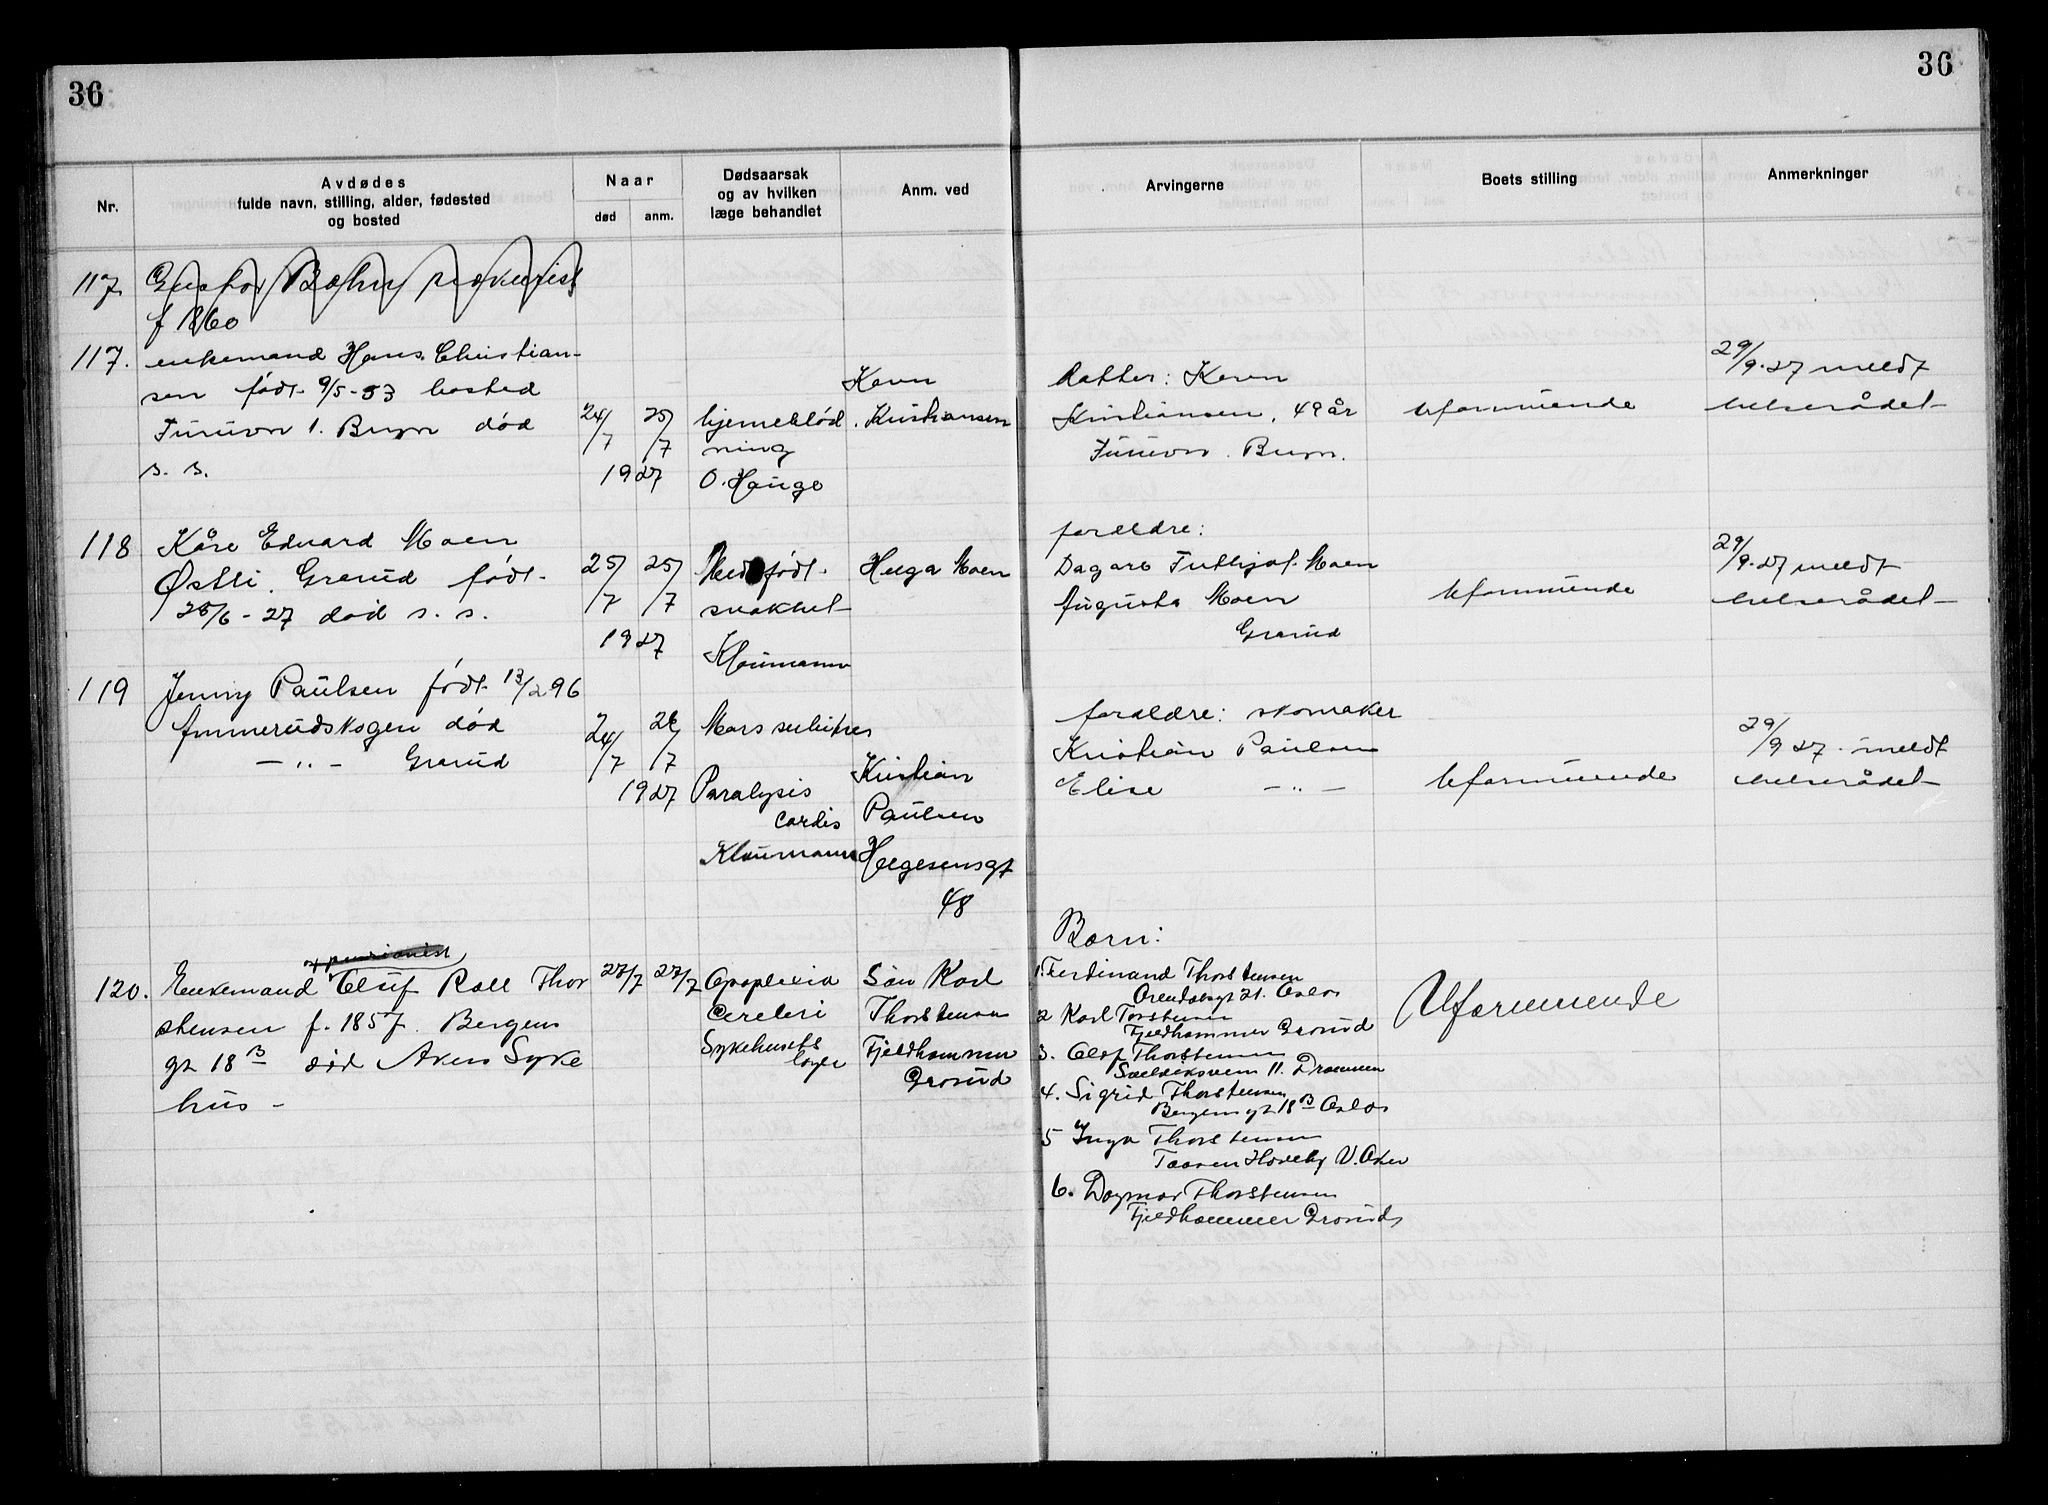 36
36
Nr.
Avdødes
fulde navn, stilling, alder, fødested
og bosted
Naar
død
anm.
Dødsaarsak
og av hvilken
læge behandlet
Anm. ved
Arvingerne
Boets stilling
Anmerkninger
117
Bæhn
f 1860
117.
enkemand Hans Christian-
sen født 9/5-53 bosted
Furuvn 1. Bryn død
s. s.
24/7
25/7
1927
hjerneblød
ning
O. Hauge
Karen
Kristiansen
datter: Karen
Kristiansen, 49 år
Furuvn. Bryn.
Uformuende
29/9-27 meldt
helserådet
118
Kåre Edvard Moen
Østli. Grorud født
25/6-27 død s. s.
25/7
25/7
1927
Medfødt
svakhet
Kloumann
Helga Moen
foreldre:
Dagare Frithjof Moen
Augusta Moen
Grorud
Uformuende
29/9-27 meldt
helserådet
119
Jenny Paulsen født 13/2 96
Ammerudskogen død
— „ — Grorud
24/7
26/7
1927
Mors subitus
Paralysis
cordis
Kloumann
Kristian
Paulsen
Helgesensgt
48
foreldre: skomaker
Kristian Paulsen
Elise — „ —
Uformuende
29/9 27 meldt
helserådet
120.
pensionist
Enkemand Oluf Roll Thor
stensen f. 1857. Bergens
gt 18 B død Akers Syke
hus -
27/7
27/7
Apoplexia
Cerebri
Sykehusets
læge
Søn Karl
Thorstensen
Fjeldhammer
Grorud
Børn:
1. Ferdinand Thorstensen
Arendalsgt 21. Oslo
2 Karl Torstensen
Fjeldhammer Grorud
3. Olaf Thorstensen
11. Drammen
4. Sigrid Thorstensen
Bergensgt 18 B Oslo
5 Inga Thorstensen
Taasen Haveby V. Aker
6. Dagmar Thorstensen
Fjeldhammer Grorud
Uformuende